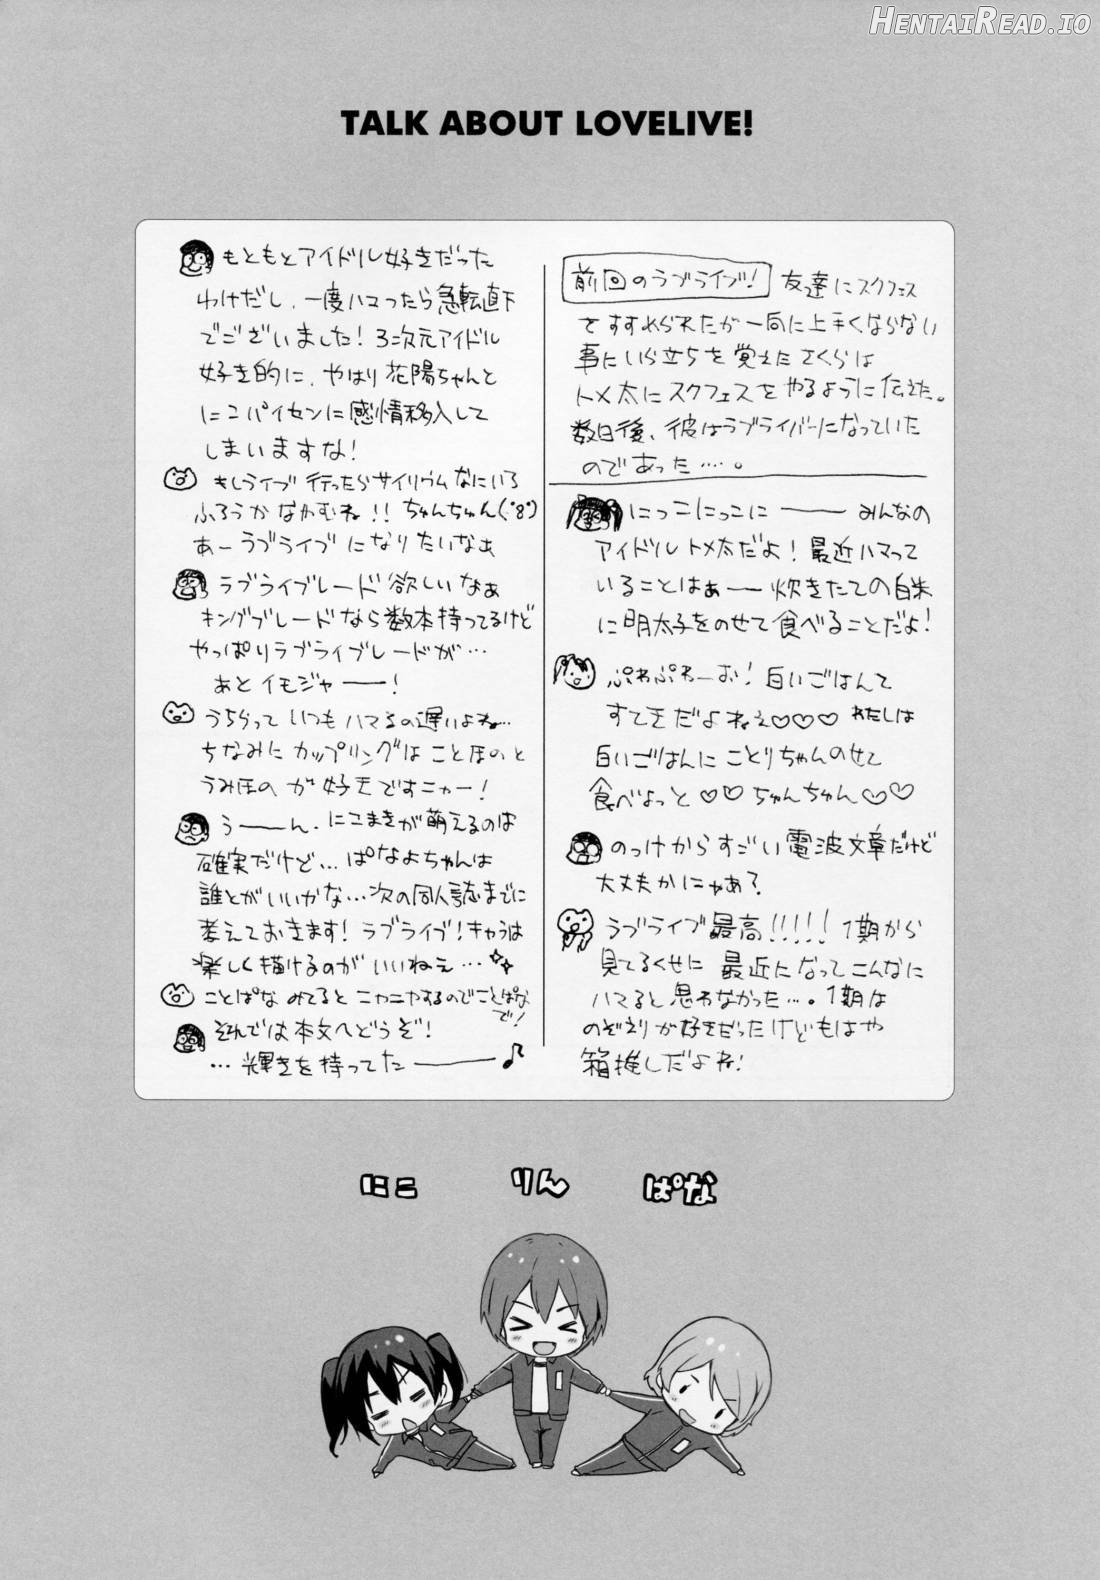 HENTAIREAD.IO
TALK ABOUT LOVELIVE!
前回のラブライブ! 友達にスクフェス
をすすめられたが一向に上手くならない
事にいら立ちを覚えたさくらは
トメ太にスクフェスをやるように伝えた。
数日後、彼はラブライバーになっていた
のであった…。
にっこにっこにーーー みんなの
アイドル トメ太だよ!最近ハマって
いることはぁーー炊きたての白米
に明太子をのせて食べることだよ!
ぷわぷわーお!白いごはんて
すてきだよねぇ♡♡♡ わたしは
白いごはんにことりちゃんのせて
食べよっと♡♡ちゅんちゅん♡♡
のっけからすごい電波文章だけど
大丈夫かにゃあ?
ラブライブ最高!!!!! 1期から
見てるくせに 最近になってこんなに
ハマると思わなかった…。1期は
のぞえりが好きだったけどもはや
箱推しだよね!
もともとアイドル好きだった
わけだし、一度ハマったら急転直下
でございました!3次元アイドル
好き的に、やはり花陽ちゃんと
にこパイセンに感情移入して
しまいますな!
もしライブ行ったらサイリウムなにいろ
ふろうかなかむね!!ちゅんちゅん(・8・)
あーラブライブになりたいなぁ
ラブライブレード欲しいなぁ
キングブレードなら数本持ってるけど
やっぱりラブライブレードが…
あとイモジャーー!
うちらって いつもハマるの遅いよね…
ちなみにカップリングはことほのと
うみほのが好きですニャー!
うーーん、にこまきが萌えるのは
確実だけど…ぱなよちゃんは
誰とがいいかな…次の同人誌までに
考えておきます!ラブライブ!キャラは
楽しく描けるのがいいねぇ…
ことぱなみてるとニヤニヤするのでことぱな
で!
それでは本文へどうぞ!
…輝きを持ってたーーー♪
にこ りん ぱな